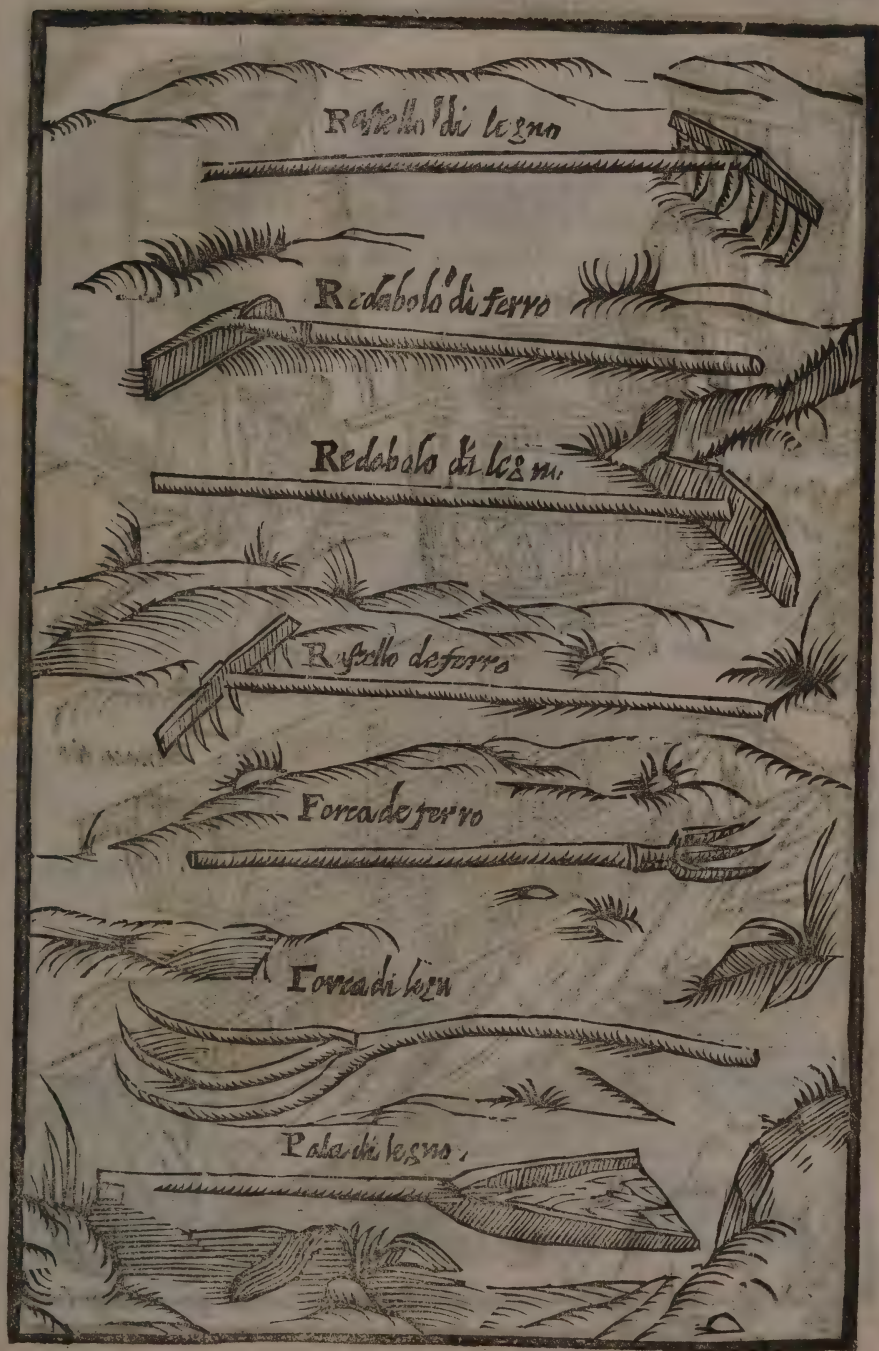 Rastello di legno
Redabolo di ferro
Redabolo di legn
Rastello de ferro
Forca de ferro
Forca di legn
Pala di legno.